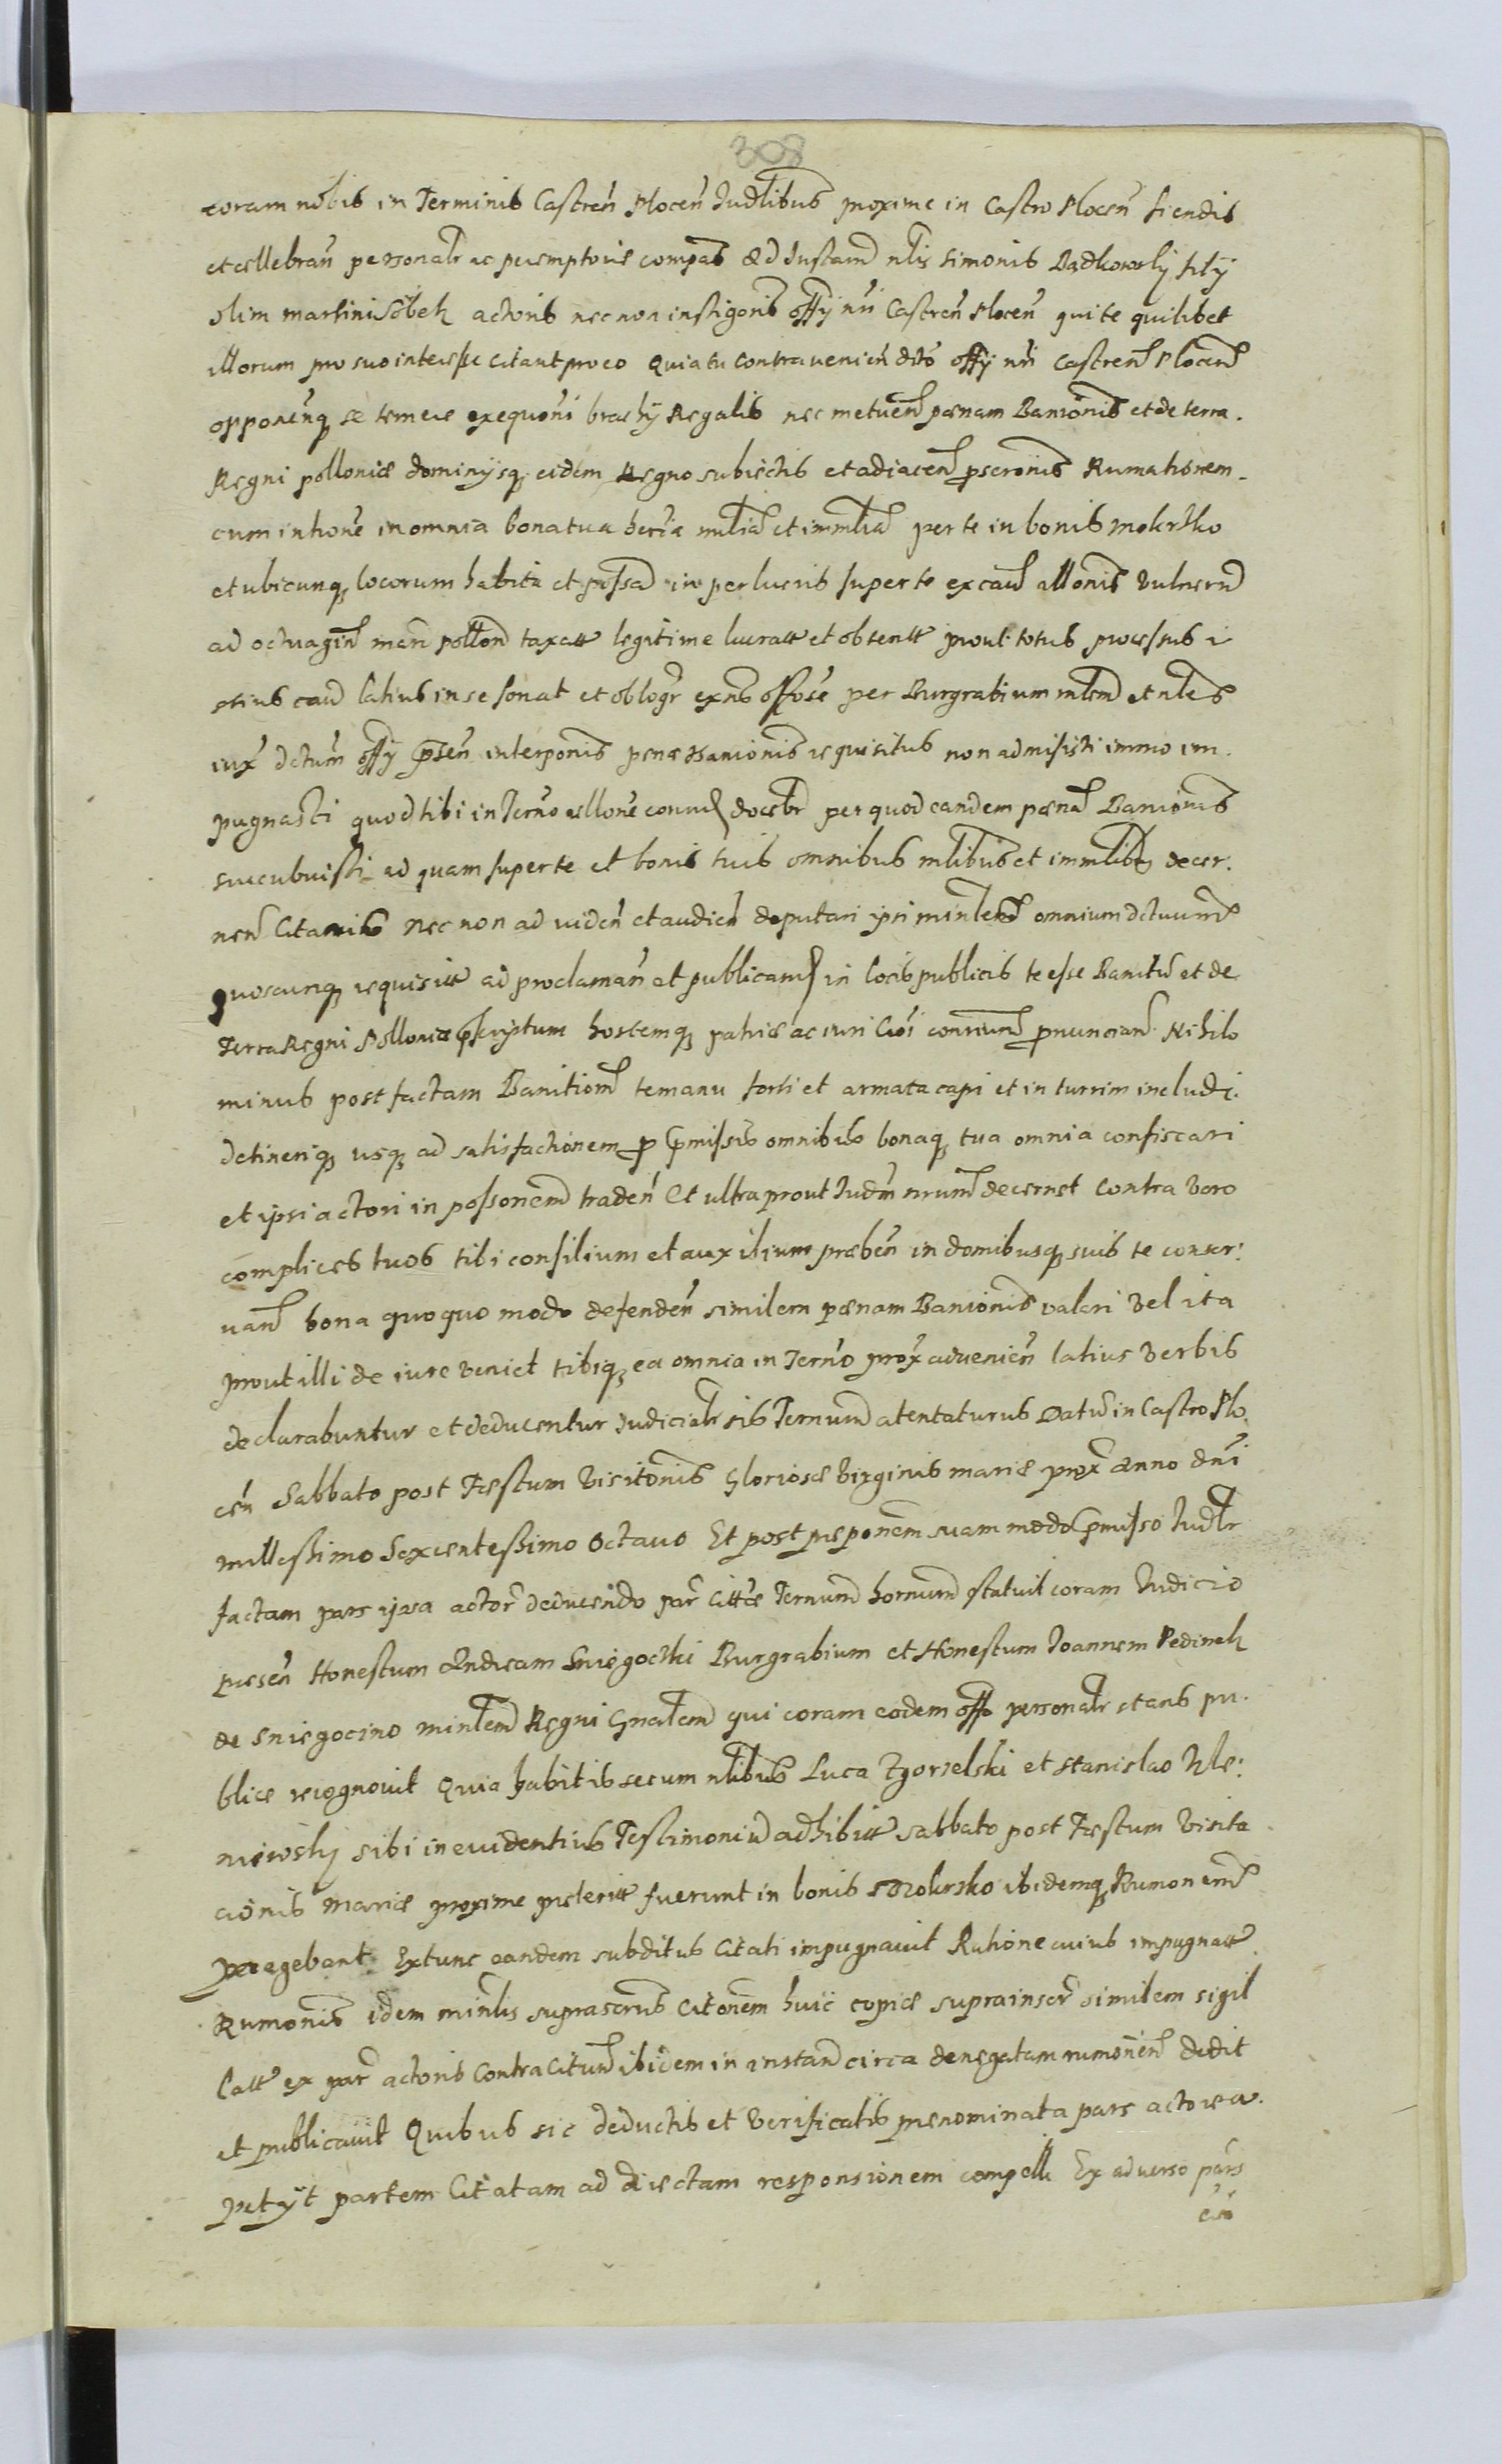 308
coram nobis in Terminis Castren̄ Plocen̄ Iudlibus proxime in Castro Plocen̄ fiendis
et cellebran̄ personalr ac peremptorie compas Ad Instam nlis Simonis Bądkowsky filij
olim martini Sobek actoris nec non instigoris offij nri Castren̄ Plocen̄ qui te quilibet
illorum pro suo interesse citant pro eo Quia tu contravenien̄ dito offij nri Castren̄ Plocen̄
opponenq se temere exequoni brachij Regalis nec metuen̄ pænam Banionis et de terra
Regni polloniæ dominijsq eidem Regno subiectis et adiacen̄ pscronis Rumationem
cum intione in omnia bona tua herria mlia et immlia per te in bonis Mokrsko
et ubicunq locorum habita et possa in perlucris super te ex cau allonis vulnerum
ad octuagin̄ mari pollon taxatt legitime lucratt et obtentt prout totus processus i
stius cau latius in se sonat et oblogr exno offose per Burgrabium mlem et nles
iux dctum offij psen̄ interponis penæ Banionis requisitus non admisisti immo im
pugnasti quod tibi in Terno allone docebr per quod eandem pænam Banionis
succubuisti ad quam super te et bonis tuis omnibus mlibus et immlibus decer:
nen̄ citaris nec non ad viden̄ et audien̄ deputari ipsi minlem omnium
quoscunq requisitt ad proclaman̄ et publicam in locis publicis te esse Banitu et de
Terra Regni Polloniæ pscriptum hostemq patriæ ac iuri Coi pnuncian̄ Nihilo
minus post factam Banitiom te manu forti et armata capi et in turrim includi
detineriq usq ad satisfactionem p pmissis omnibus bonaq tua omnia confiscari
et ipsi actori in possonem traden̄ Et ultra prout Iudm nrum decernet Contra vero
complices tuos tibi consilium et auxilium præben̄ in domibusq suis te conser:
van̄ bona quoquo modo defenden̄ similem pænam Banionis valeri vel ita
prout illi de iure veniet tibiq ea omnia in Terno prox advenien̄ latius verbis
declarabuntur et deducentur iudicialr sis Ternum atentaturus Datu in Castro Plo
cen̄ Sabbato post Festum Visitonis Gloriosæ Virginis mariæ prox Anno dni
millessimo Sexcentessimo Octavo Et post preponem suam modo pmisso Iudlr
factam pars ipsa actor deducendo par cittæ Ternum hornum statuit coram Iudicio
presen̄ Honestum Andream Sniegoczki Burgrabium et Honestum Ioannem Pedinek
de Sniegocino minlem Regni Gnalem qui coram eodem offo personalr stans pu
blice recognovit Quia habitis secum nlibus Luca Zgorzelski et Stanislao Ule:
niewsky sibi in evidentius Testimoniu adhibitt sabbato post Festum Visita
cionis Mariæ proxime preteritt fuerunt in bonis Mokrsko ibidemq Rumonem
peragebant Extunc eandem subditus Citati impugnavit Ratione cuius impugnatt
Rumonis idem minlis suprascrus Citonem huic copiæ suprainscr similem sigil
latt ex par actoris contra Citum ibidem in instan circa denegatam rumonem dedit
et publicavit Quibus sic deductis et verificatis prenominata pars actorea
petijt partem Citatam ad directam responsionem compelli Ex adverso pars